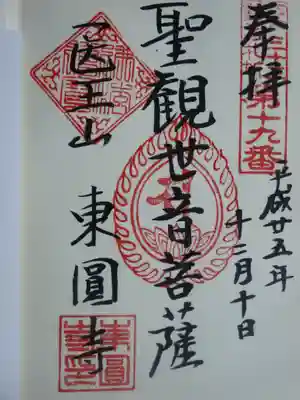 奉拝
第十九番
平成廿五年
十二月十日
聖観世音菩薩
医王山
東圓寺
東圓寺